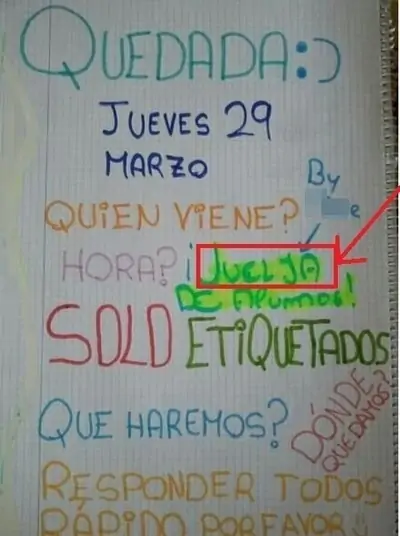 QUEDADA:)
JUEVES 29
MARZO
By
QUIEN VIENE?
HORA? ¡JUELJA
DE Alumnos!
SOLO ETIQUETADOS
QUE HAREMOS?
DÓNDE
QUEDAMOS?
RESPONDER TODOS
RÁPIDO POR FAVOR